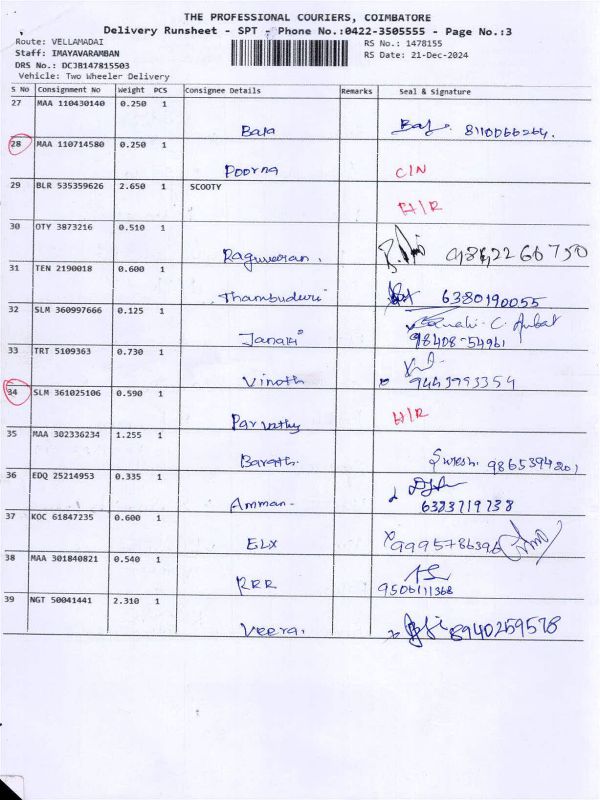 THE PROFESSIONAL COURIERS, COIMBATORE
Delivery Runsheet - SPT - Phone No.:0422-3505555 - Page No.:3
Route: VELLAMADAI RS No.: 1478155
Staff: IMAYAVARAMBAN RS Date: 21-Dec-2024
DRS No.: DCJB147815503
Vehicle: Two Wheeler Delivery
S No Consignment No Weight PCS Consignee Details Remarks Seal & Signature
27 MAA 110430140 0.250 1
Bala 8110066264.
28 MAA 110714580 0.250 1
Poorna C/N
29 BLR 535359626 2.650 1 SCOOTY
H/R
30 OTY 3873216 0.510 1
Raguveran.
31 TEN 2190018 0.600 1
Thambuduri 6380190055
32 SLM 360997666 0.125 1
Janaki 98408-54961
33 TRT 5109363 0.730 1
Vinoth 9443993354
34 SLM 361025106 0.590 1
Parvathy H/R
35 MAA 302336234 1.255 1
Barath. Suresh. 9865394201
36 EDQ 25214953 0.335 1
Amman. 6383719738
37 KOC 61847235 0.600 1
ELX 9995786396
38 MAA 301840821 0.540 1
RRR 9506111368
39 NGT 50041441 2.310 1
Veera. 8940259578